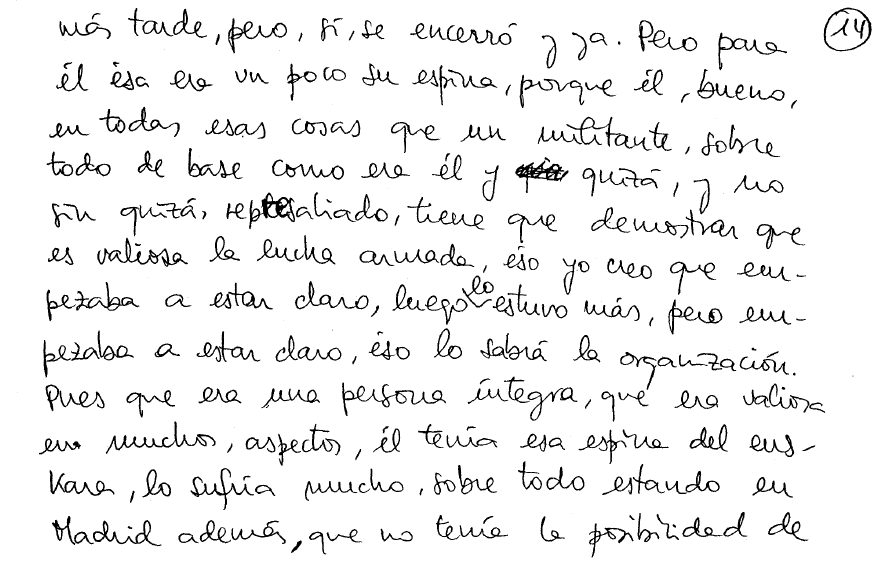 más tarde, pero, sí, se encerró y ya. Pero para
él ésa era un poco su espina, porque él, bueno,
en todas esas cosas que un militante, sobre
todo de base como era él y quizá, y no
sin quizá, represaliado, tiene que demostrar que
es valiosa la lucha armada, éso yo creo que em-
pezaba a estar claro, luego lo estuvo más, pero em-
pezaba a estar claro, éso lo sabrá la organización.
Pues que era una persona íntegra, que era valiosa
en muchos, aspectos, él tenía esa espina del eus-
kara, lo sufría mucho, sobre todo estando en
Madrid además, que no tenía la posibilidad de
14